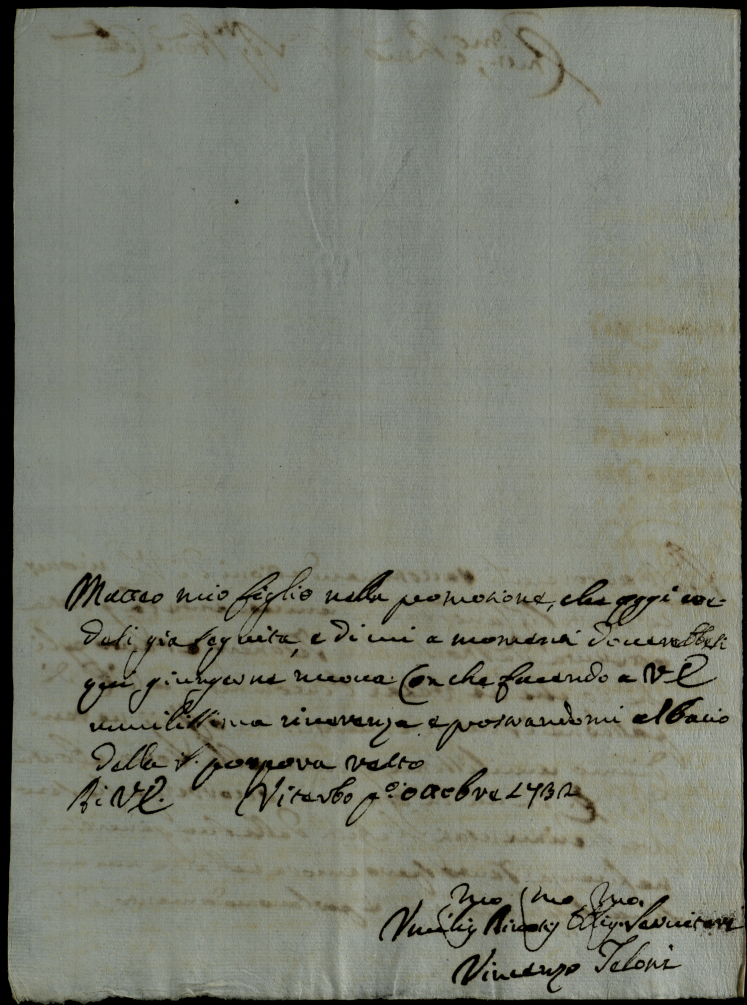 Matteo mio figlio nella promozione, che oggi cre-
desi gia seguita, e di cui a momenti doverebbesi
qui giungerne nuova. Con che facendo a V. E.
umilissima riverenza, e prostrandomi al bacio
della S. porpora resto
Di V. E. Viterbo p.o ottobre 1732
mo mo mo
Umilis Divotis Oblig Servitore
Vincenzo Teloni